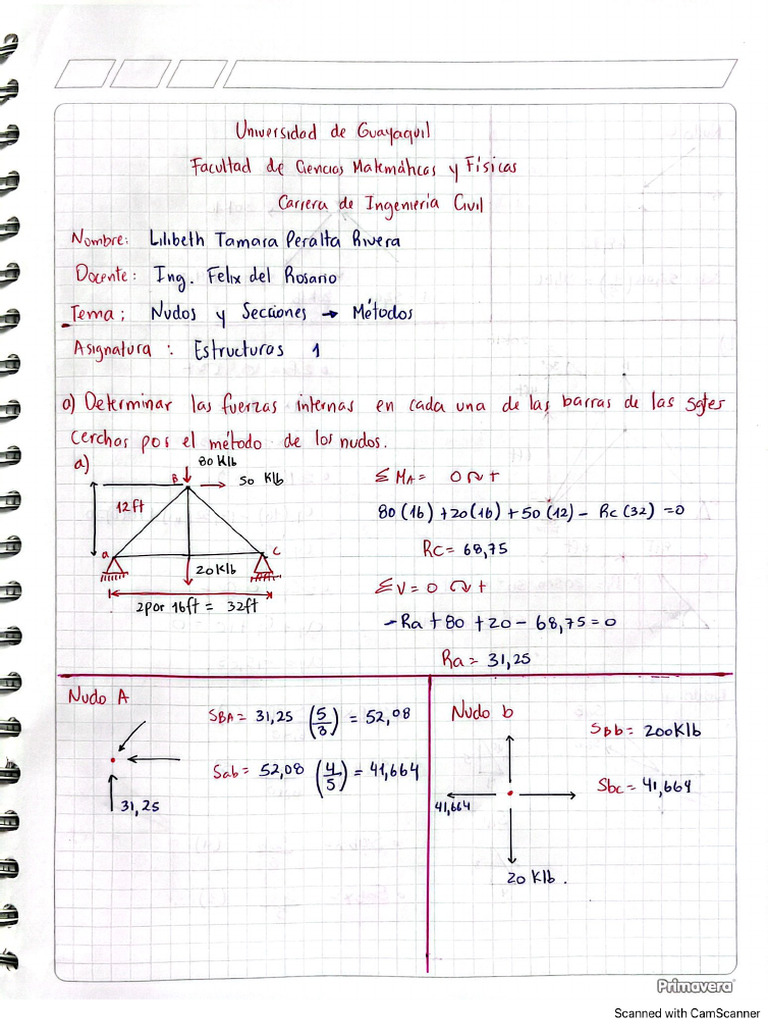 Universidad de Guayaquil
Facultad de Ciencias Matemáticas y Físicas
Carrera de Ingeniería Civil
Nombre: Lilibeth Tamara Peralta Rivera
Docente: Ing. Felix del Rosario
Tema: Nudos y Secciones → Métodos
Asignatura: Estructuras 1
o) Determinar las fuerzas internas en cada una de las barras de las sgtes
cerchas por el método de los nudos.
a)
80 Klb
B
50 Klb
12ft
a
C
20Klb
2por 16ft = 32ft
ΣMA = 0 ↷+
80(16) + 20(16) + 50(12) - Rc(32) = 0
Rc = 68,75
ΣV = 0 ↷+
-Ra + 80 + 20 - 68,75 = 0
Ra = 31,25
Nudo A
SBA = 31,25 (5/3) = 52,08
Sab = 52,08 (4/5) = 41,664
31,25
Nudo b
SBb = 200Klb
Sbc = 41,664
41,664
20 Klb.
Primavera
Scanned with CamScanner